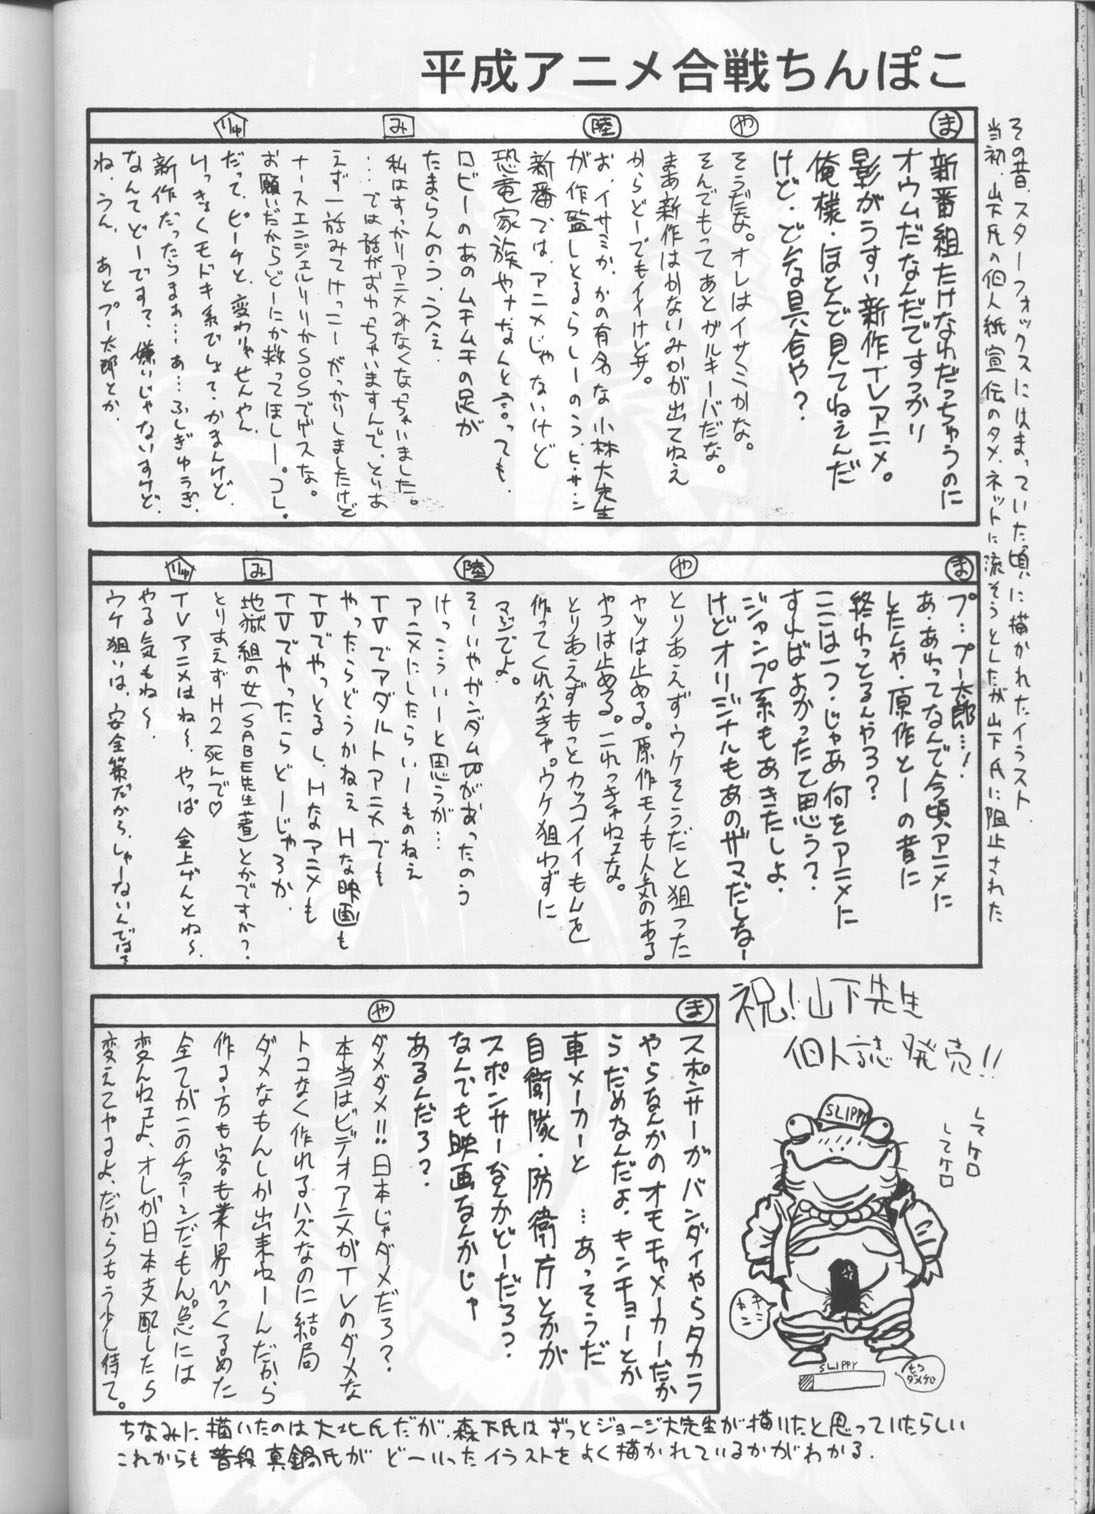 平成アニメ合戦ちんぽこ
その昔、スターフォックスにはまっていた頃に描かれたイラスト。
当初、山下氏の個人紙宣伝のタメ、ネットに流そうとしたが山下氏に阻止された
ま
新番組たけなわだっちゅうのに
オウムだなんだですっかり
影がうすい新作TVアニメ。
俺様・ほとんど見てねえんだ
けど・どんな具合や?
や
そうだな。オレはイサミかな。
そんでもってあとガルキーバだな。
まあ新作はかないみかが出てねえ
からどーでもイイけどサ。
陸
お、イサミか、かの有名な小林大先生
が作監しとるらしーのう、ヒ・サ・シ
新番では、アニメじゃないけど
恐竜家族やナなんと言っても、
ロビーのあのムチムチの足が
たまらんのう、ううへえ
み
私はすっかりアニメみなくなっちゃいました。
…では話がおわっちゃいますんで、とりあ
えず一話みてけっこーがっかりしましたけど
ナースエンジェルりりかSOSでゲスな。
お願いだからどーにか救ってほしー。コレ。
りゅ
だって、ピーチと、変わりゃせんやん
りっきょくモドキ系でしょて・かまんけど、
新作だったらまぁ…あ…ふしぎゅうぎ、
なんてどーですて、嫌いじゃないすけど、
ね、うん、あとプー太郎とか、
ま
プ…プー太郎…!
あ、あれってなんで今頃アニメに
したんや・原作とーの昔に
終わっとるんやろ?
ここは一つ・じゃあ何をアニメに
すればよかったて思う?
ジャンプ系もあきたしよ・
けどオリジナルもあのザマだしなー
や
とりあえずウケそうだと狙った
ヤツは止める。原作モノも人気のある
やつは止める。これっきゃねェな。
とりあえずもっとカッコイイもんを
作ってくれなきゃ。ウケ狙わずに
マジでよ。
陸
そーいやガンダムWがあったのう
けっこういーと思うが…
アニメにしたらいーものねえ
TVでアダルトアニメでも
やったらどうかねえHな映画も
TVでやっとるし、Hなアニメも
TVでやったらどーじゃろか
み
地獄組の女(SABE先生著)とかですか?
とりあえずH2死んで♡
りゅ
TVアニメはね〜、やっぱ金上げんとね〜、
やる気もね〜
ウケ狙いは、安全策だから、しゃーないんでは?
ま
スポンサーがバンダイやらタカラ
やらなんかのオモチャメーカーだか
らだめなんだよ・キンチョーとか
車メーカーと…あっそうだ
自衛隊・防衛庁とかが
スポンサーなんかどーだろ?
なんでも映画なんかじゃ
あるんだろ?
や
ダメダメ!!日本じゃダメだろ?
本当はビデオアニメがTVのダメな
トコなく作れるハズなのに結局
ダメなもんしか出来ねーんだから
作る方も客も業界ひっくるめた
全てがこのチョーシだもん。急には
変んねェよ、オレが日本支配したら
変えてやるよ、だからもう少し待て。
祝!山下先生
個人誌発売!!
してケロ
してケロ
SLIPPY
キンキン
SLIPPY
もうダメケロ
ちなみに描いたのは大北氏だが、森下氏はずっとジョージ大先生が描いたと思っていたらしい
これからも普段真鍋氏がどーいったイラストをよく描かれているかがわかる.